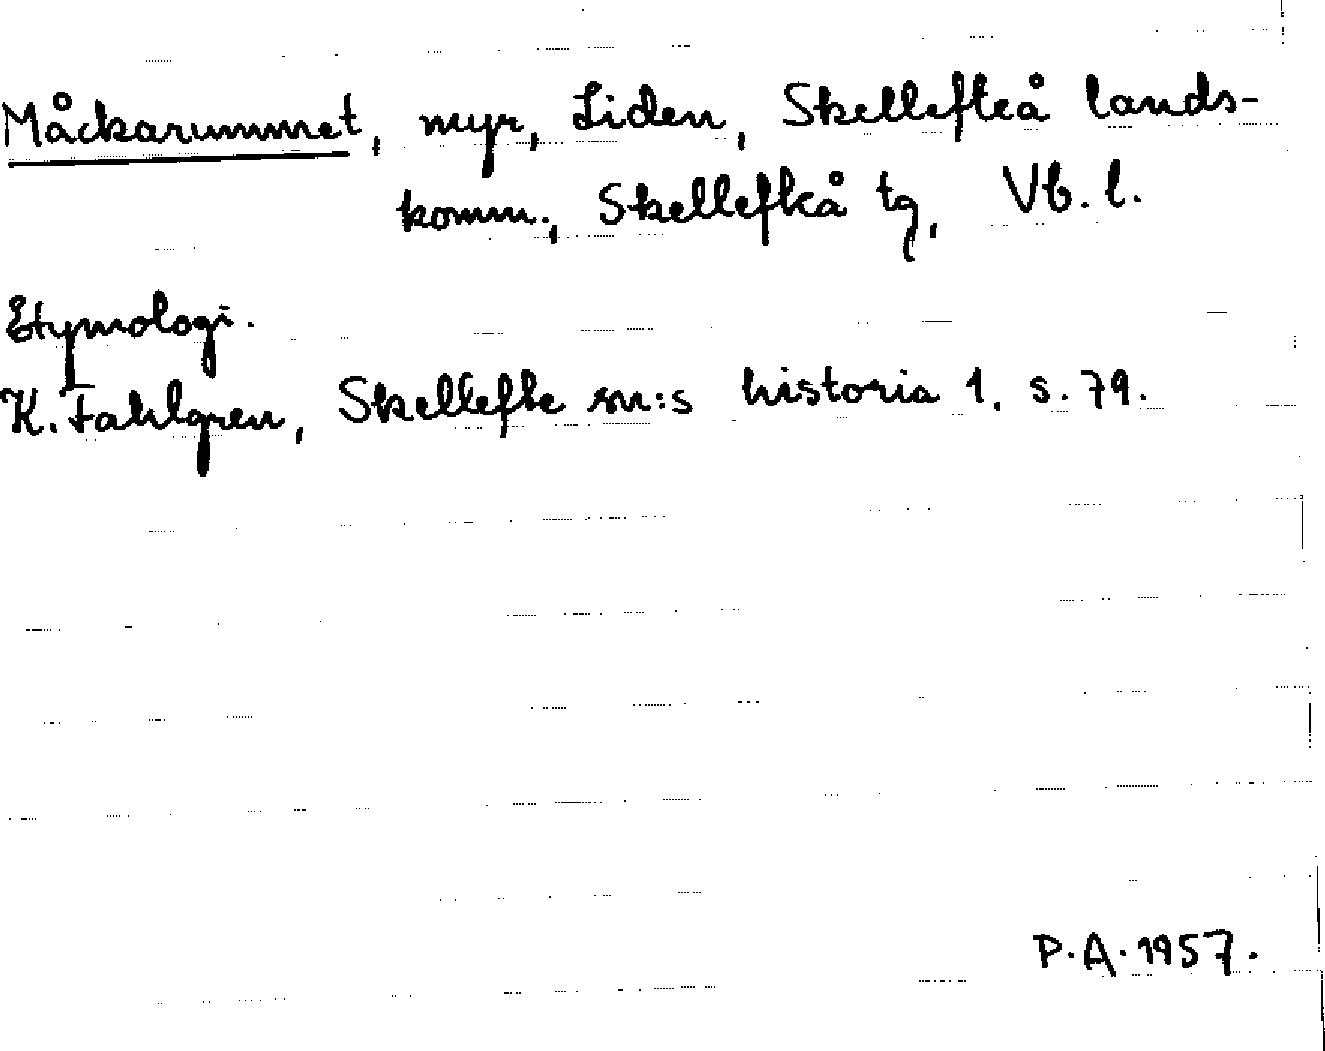 Måckarummet, myr, Liden, Skellefteå lands-
komm., Skellefteå tg, Vb. l.
Etymologi.
K. Fahlgren, Skellefte sn:s historia 1. s. 79.
P.A. 1957.